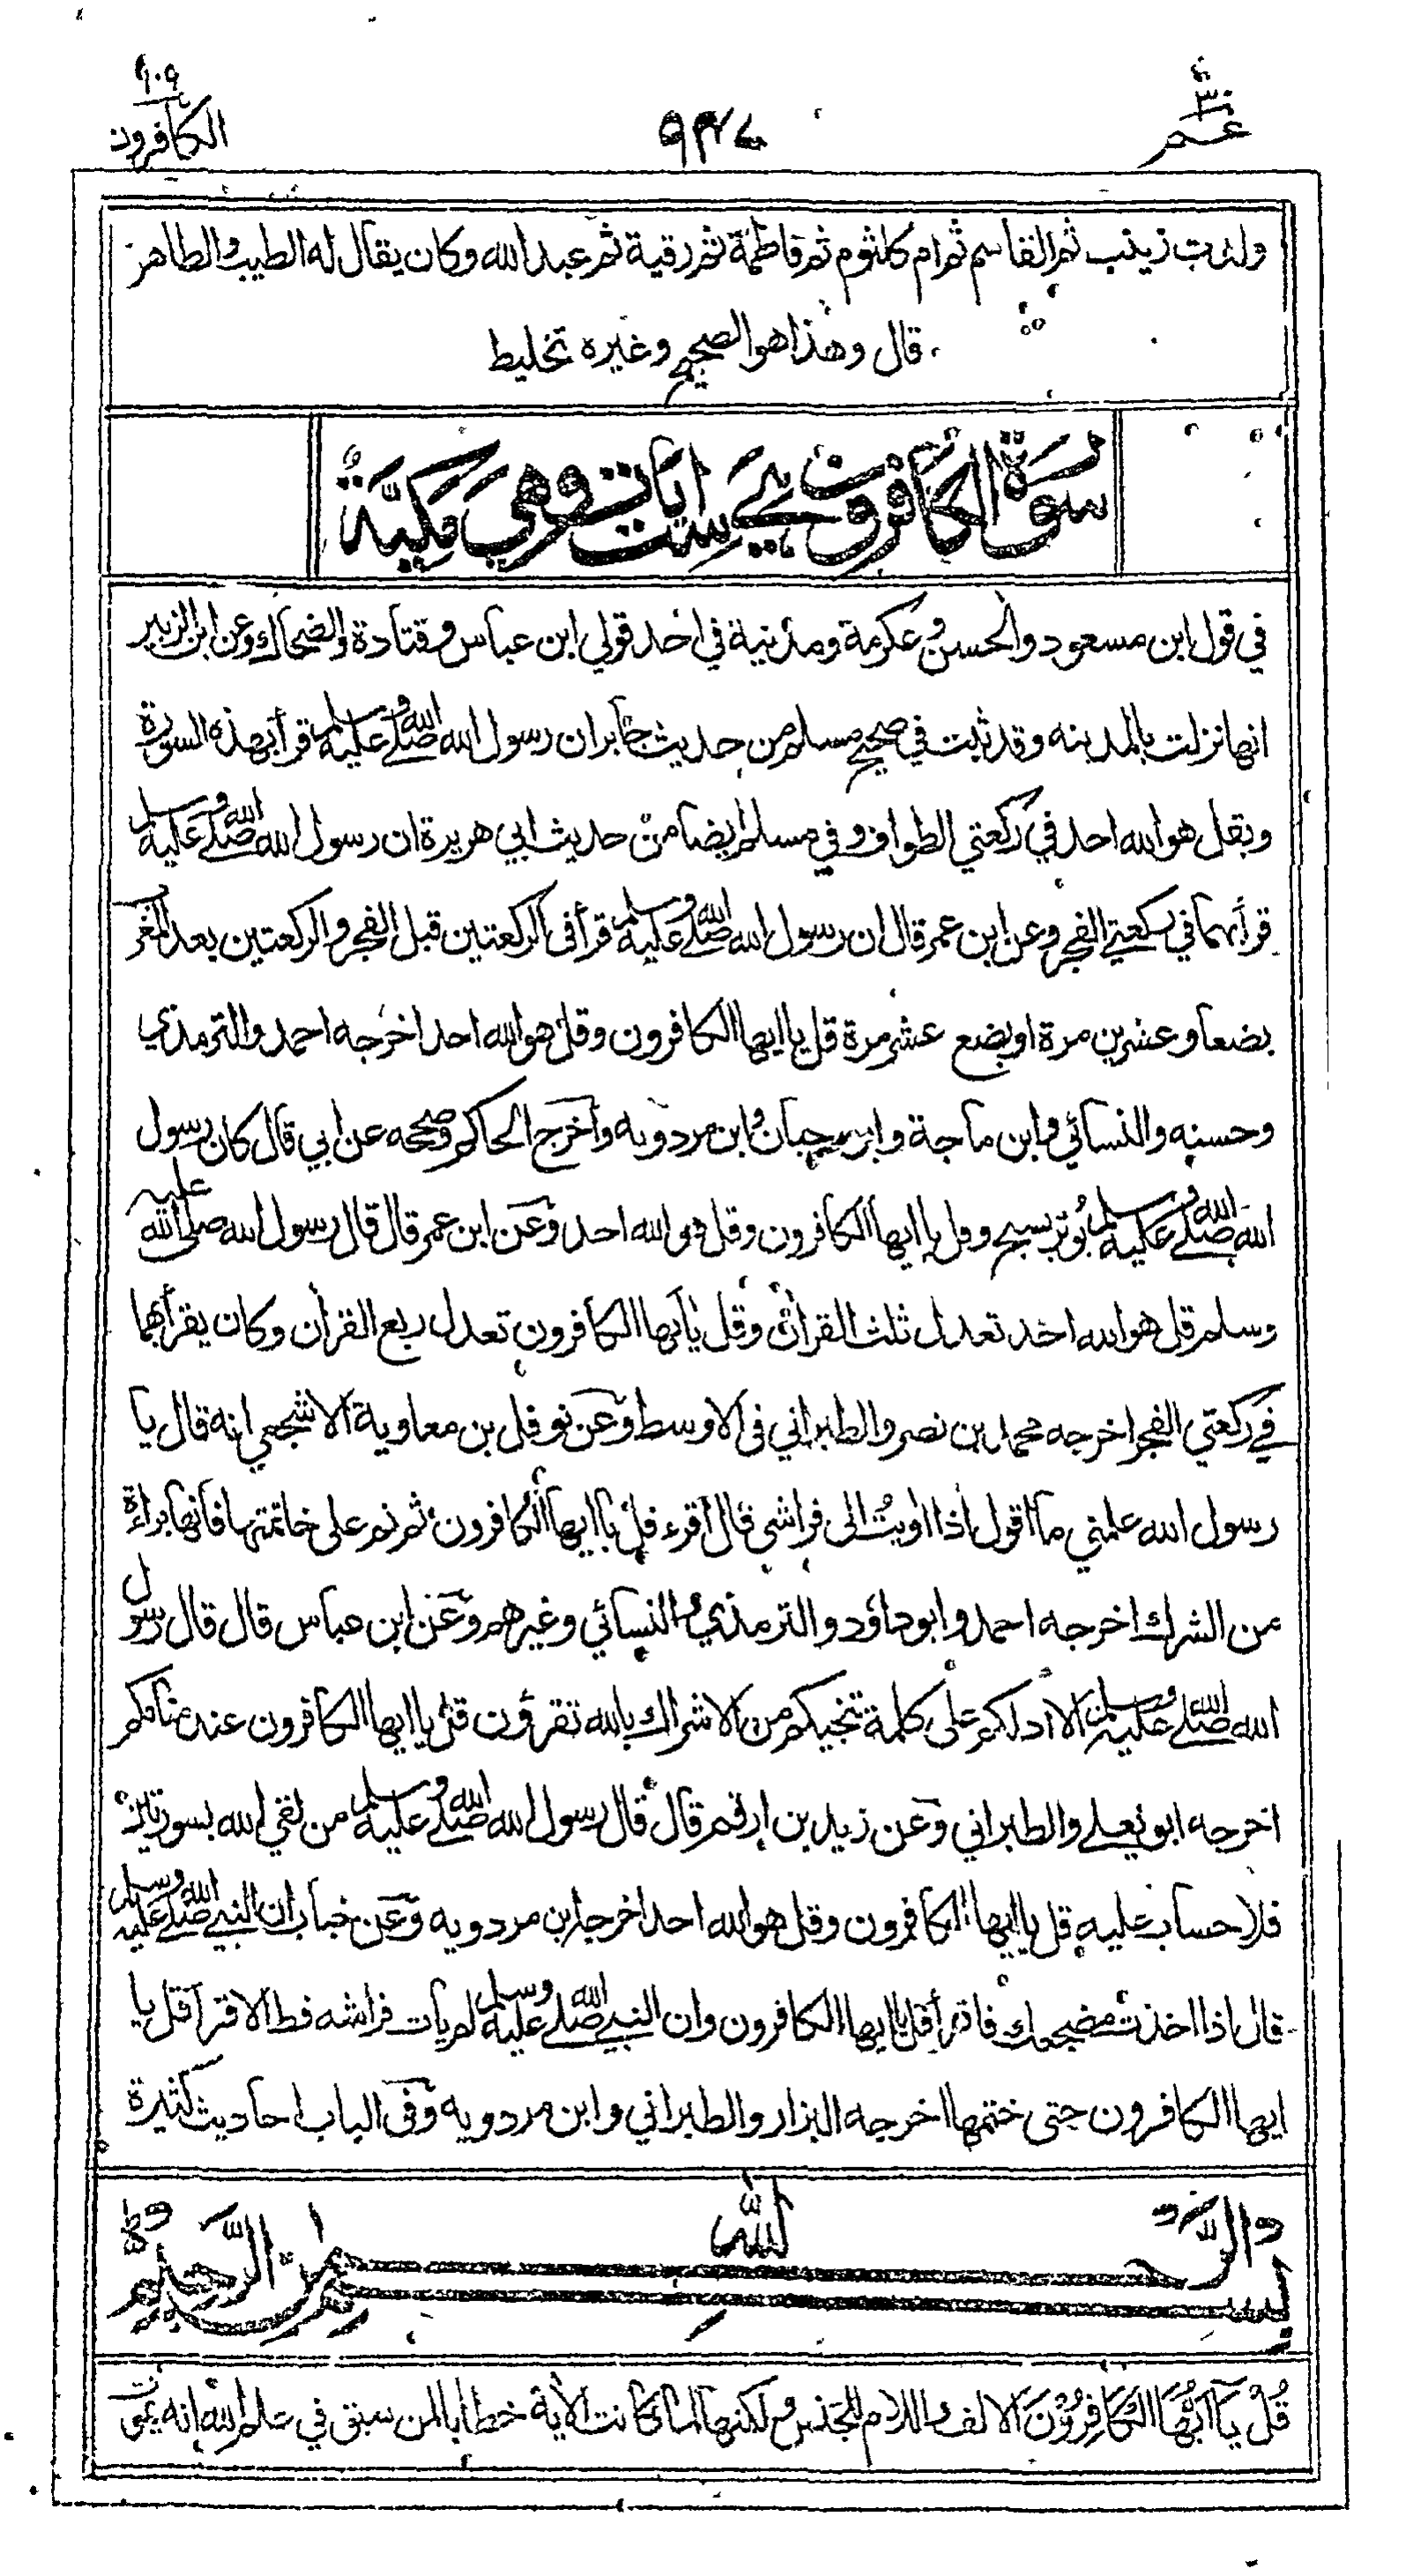 عم ٣٠
٩٣٧
الكافرون ١٠٩
ولدت زينب ثم القاسم ثم ام كلثوم ثم فاطمة ثم رقية ثم عبد الله وكان يقال له الطيب والطاهر
قال وهذا هو الصحيح وغيره تخليط
سورة الكافرون هي ست ايات وهي مكية
في قول ابن مسعود والحسن وعكرمة ومدنية في احد قولي ابن عباس وقتادة والضحاك وعن ابن الزبير
انها نزلت بالمدينه وقد ثبت في صحيح مسلم من حديث جابر ان رسول الله صلى الله عليه وسلم قرأ بهذه السورة
وبقل هو الله احد في ركعتي الطواف وفي مسلم ايضا من حديث ابي هريرة ان رسول الله صلى الله عليه وسلم
قرأ بهما في ركعتي الفجر وعن ابن عمر قال ان رسول الله صلى الله عليه وسلم قرأ فى الركعتين قبل الفجر والركعتين بعد المغرب
بضعا وعشرين مرة او بضع عشر مرة قل يا ايها الكافرون وقل هو الله احد اخرجه احمد والترمذي
وحسنه والنسائي وابن ماجة وابن حبان وابن مردويه وأخرج الحاكم وصححه عن ابي قال كان رسول
الله صلى الله عليه وسلم يوتر بسبح وقل يا ايها الكافرون وقل هو الله احد وعن ابن عمر قال قال رسول الله صلى الله عليه
وسلم قل هو الله احد تعدل ثلث القرأن وقل يا أيها الكافرون تعدل ربع القرأن وكان يقرأ بهما
في ركعتي الفجر اخرجه محمد بن نصر والطبراني فى الاوسط وعن نوفل بن معاوية الاشجعي انه قال يا
رسول الله علمني ما اقول اذا اويت الى فراشي قال اقرء قل يا ايها الكافرون ثم نم على خاتمتها فانها براءة
من الشرك اخرجه احمد وابو داؤد والترمذي والنسائي وغيرهم وعن ابن عباس قال قال رسول
الله صلى الله عليه وسلم الا ادلكم على كلمة تنجيكم من الاشراك بالله تقرؤن قل يا ايها الكافرون عند منامكم
اخرجه ابو يعلى والطبراني وعن زيد بن ارقم قال قال رسول الله صلى الله عليه وسلم من لقي الله بسورتين
فلا حساب عليه قل يا ايها الكافرون وقل هو الله احد اخرجه ابن مردويه وعن خباب ان النبي صلى الله عليه وسلم
قال اذا اخذت مضجعك فاقرأ قل يا ايها الكافرون وان النبي صلى الله عليه وسلم لم يأت فراشه قط الا قرأ قل يا
ايها الكافرون حتى ختمها اخرجه البزار والطبراني وابن مردويه وفى الباب احاديث كثيرة
بسم الله الرحمن الرحيم
قُلْ يَآ اَيُّهَا الْكَافِرُوْنَ الالف واللام للجنس ولكنها لما كانت الأية خطابا لمن سبق في علم الله انه يموت